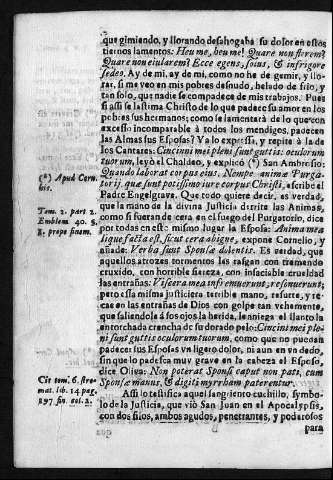 que gimiendo, y llorando desahogaba su dolor en estos
tiernos lamentos: Heu me, heu me! Quare non flerem?
Quare non eiularem? Ecce egens, solus, & infrigore
sedeo. Ay de mi, ay de mi, como no he de gemir, y llo-
rar, si me veo en mis pobres desnudo, helado de frio, y
tan solo, que nadie se compadece de mis trabajos. Pues
si assi se lastima Christo de lo que padece su amor en los
pobres sus hermanos; como se lamentarà de lo que con
excesso incomparable à todos los mendigos, padecen
las Almas sus Esposas? Ya lo expressa, y repite à la de
los Cantares: Cincinni mei pleni sunt guttis oculorum
tuorum, leyò el Chaldeo, y explicò (*) San Ambrosio:
(*) Apud Corn.
hic.
Quando laborat corpus eius. Nempe animæ Purga-
torij, quæ sunt potissimo iure corpus Christi, escribe el
Padre Engelgrave. Que todo quiere decir, es verdad,
que la mano de la divina Justicia derrite las Animas,
Tom. 2. part. 2.
Emblem. 40. §.
prope finem.
como si fueran de cera en el fuego del Purgatorio, dice
por todas en este mismo lugar la Esposa: Anima mea
liquefacta est, sicut cera ab igne, expone Cornelio, y
añade: Verba sunt Sponsæ dolentis. Es verdad, que
aquellos atrozes tormentos les rasgan con tremendo
cruxido, con horrible fiereza, con insaciable crueldad
las entrañas: Viscera mea infremuerunt, resonuerunt;
pero essa misma justiciera terrible mano, resurte, y re-
toca en las entrañas de Dios con golpe tan vehemente,
que saliendole à los ojos la herida, le aniega el llanto la
entorchada crencha de su dorado pelo: Cincinni mei ple-
ni sunt guttis oculorum tuorum, como que no puedan
padecer sus Esposas vn ligero dolor, ni aun en vn dedo,
sin que lo padezca muy grave en la cabeza el Esposo,
dice Oliva: Non poterat Sponsi caput non pati, cum
Sponsæ manus, & digiti myrrham paterentur.
Cit tom. 6. Stro-
mat. lib. 14. pag.
297. fin. col. 2.
Assi lo testifica aquel sangriento cuchillo, symbo-
lo de la Justicia, que viò San Juan en el Apocalypsis,
con dos filos, ambos agudos, penetrantes, y poderosos
para